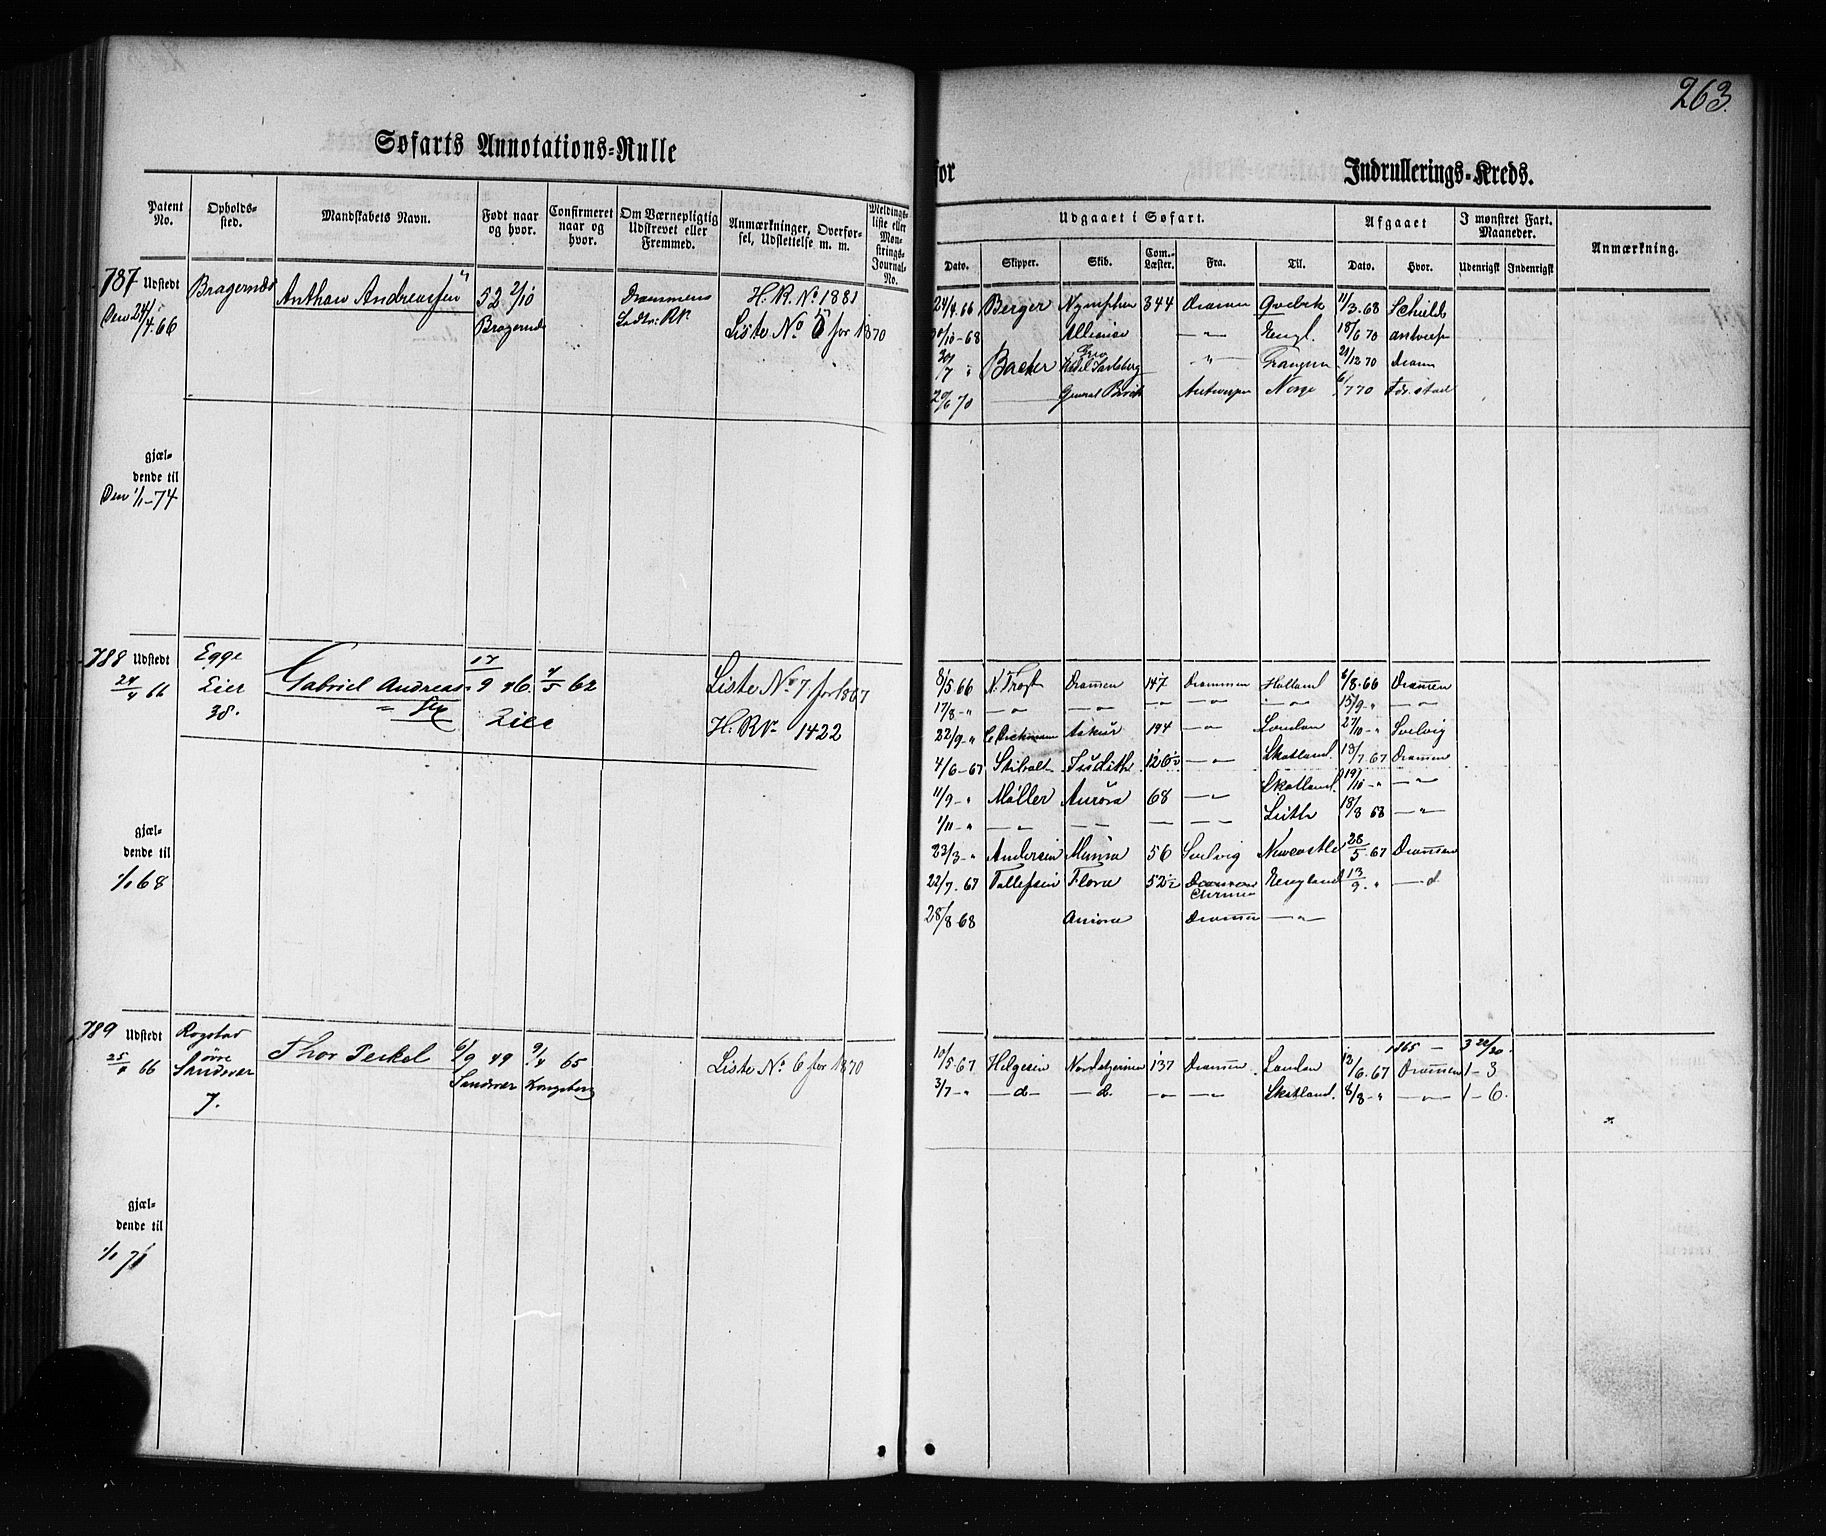 263.
Søfarts Annotations-Rulle
for
Indrullerings-Kreds.
Patent No.
Opholdssted.
Mandskabets Navn.
Født naar og hvor.
Confirmeret naar og hvor.
Om Værnepligtig Udskrevet eller Fremmed.
Anmærkninger, Overførsel, Udslettelse m. m.
Meldingsliste eller Mønstrings-Journal-No.
Udgaaet i Søfart.
Afgaaet
I mønstret Fart. Maaneder.
Anmærkning.
Dato.
Skipper.
Skib.
Com. Læster.
Fra.
Til.
Dato.
Hvor.
Udenrigsk
Indenrigsk
787 Udstedt
Den 24/4.66
Bragernæs
Anthon Andreassen
52 2/10
Bragernæs
Drammens
H. R. No 1881
Liste No 5 for 1870
24/4.66 Berger Nymphen 344 Dramen Qvebek 11/3.68 Schields
-68 — " — Engl. 18/6 70 antwerp
Backer — " — 21/12 70 Dram
29/6 70 General Birch Antwerpen Norge 6/7 70 Fdr.stad
gjæl-
dende til
Den 1/1-74
788 Udstedt
24/4 66
Egge
Lier
38.
Gabriel Andreas
17/9 46.
Lier
7/5 62
Liste No 7 for 1867
H. R No 1422
8/5.66 N. Trost Dramen 147 Drammen Holland 6/8.66 Dramen
17/8-" — " — — " — — " — — " — 15/9-" — " —
22/9-" 194 — " — London 27/10-" Svelvig
4/6-67 Judithe — " — Skotland 13/7 67 Dramen
11/9-" Møller Aurora 68 — " — Skotland. 19/10-" — " —
1/11-" — " — — — — — — Leith 18/3 68 — " —
23/3-" Andersen Minna 56 Svelvig Newcastle 28/5.67 Dramen
22/7.67 Tollefsen Flora 52½ England 13/9." — d
28/8-68 Aurora Dramen — " —
gjæl-
dende til
1/1 68
789 Udstedt
25/4 66
Rogstad
øvre
Sandsvær
7.
Thor Perkel
6/9 49
Sandsvær
9/4 65
Kongsberg
Liste No 6 for 1870
1865 — 3 20/30.
10/5.67 Helgesen 137 Dramen London 13/6.67 Dramen 1-3
3/7-" — d — — d. — " — — " — Skotland. 8/8-" — " — 1-6.
gjæl-
dende til
1/1 71